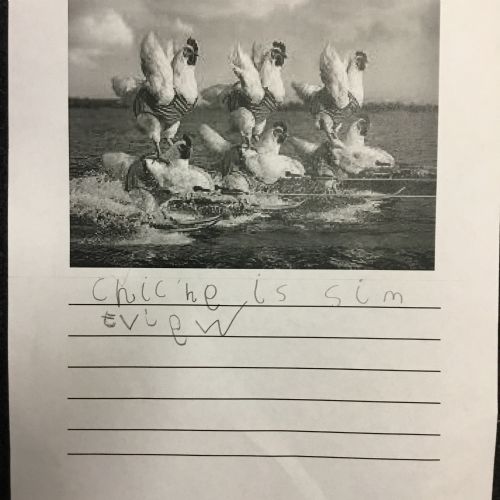 chic'ne is sim
tview